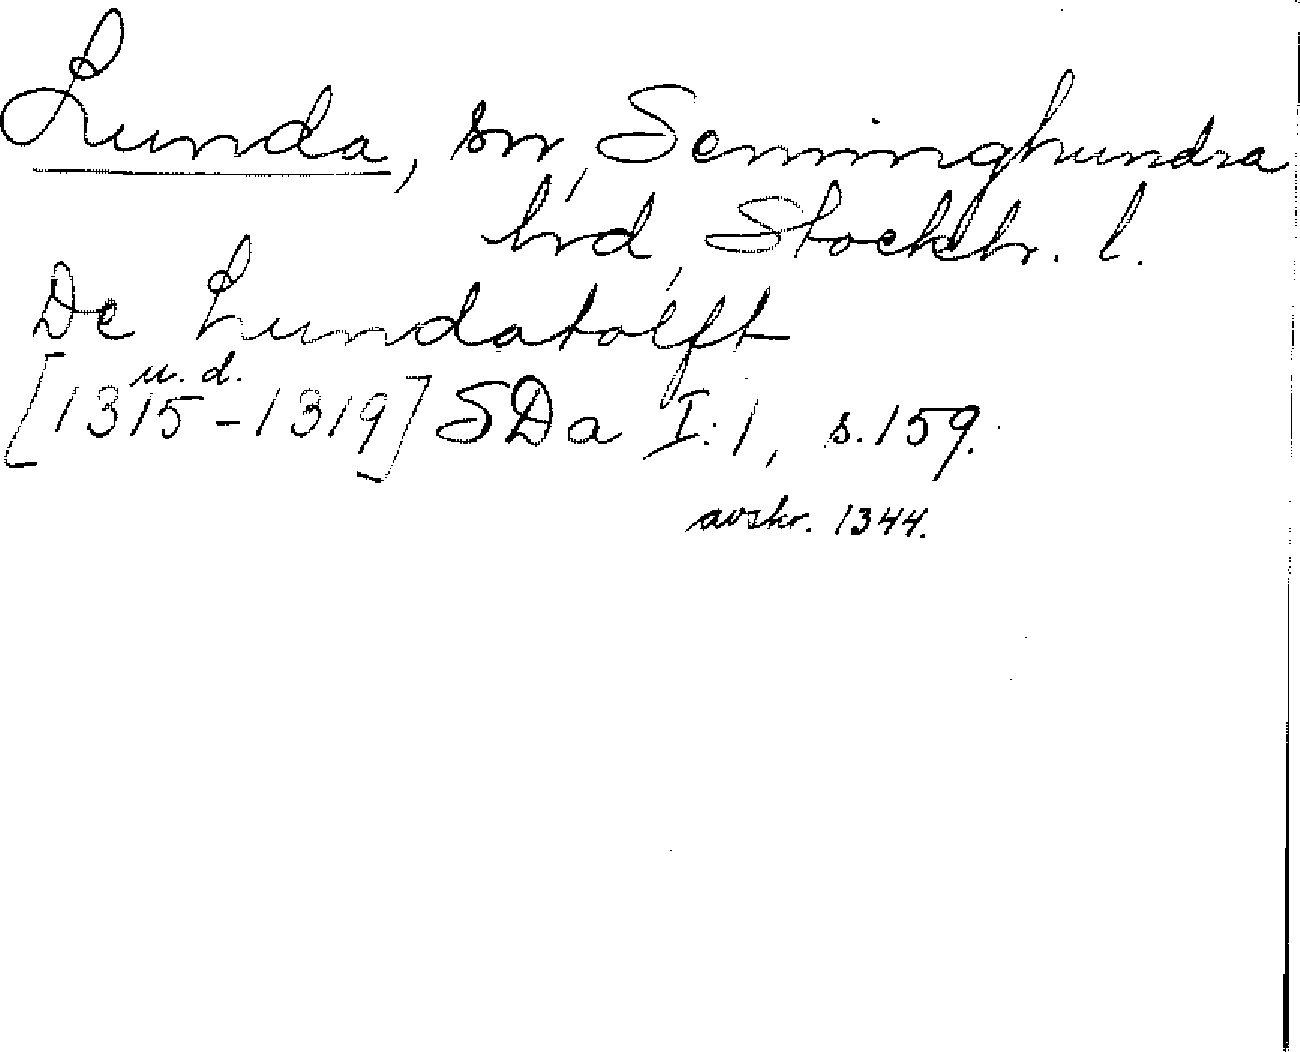 Lunda, sn, Seminghundra
hrd, Stockh. l.
De Lundatolft
u. d.
[1315-1319] SDa I:1, s. 159.
avskr. 1344.